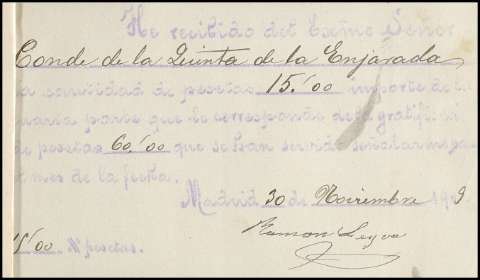 He recibido del Excmo Señor
Conde de la Quinta de la Enjarada,
la cantidad de pesetas 15.'00 importe de la
cuarta parte que le corresponde de la gratifi
de pesetas 60.'00 que se han servido señalarme
mes de la fecha.
Madrid 30 de Noviembre 19 9
Ramon Leyva
15'00 Nº pesetas.